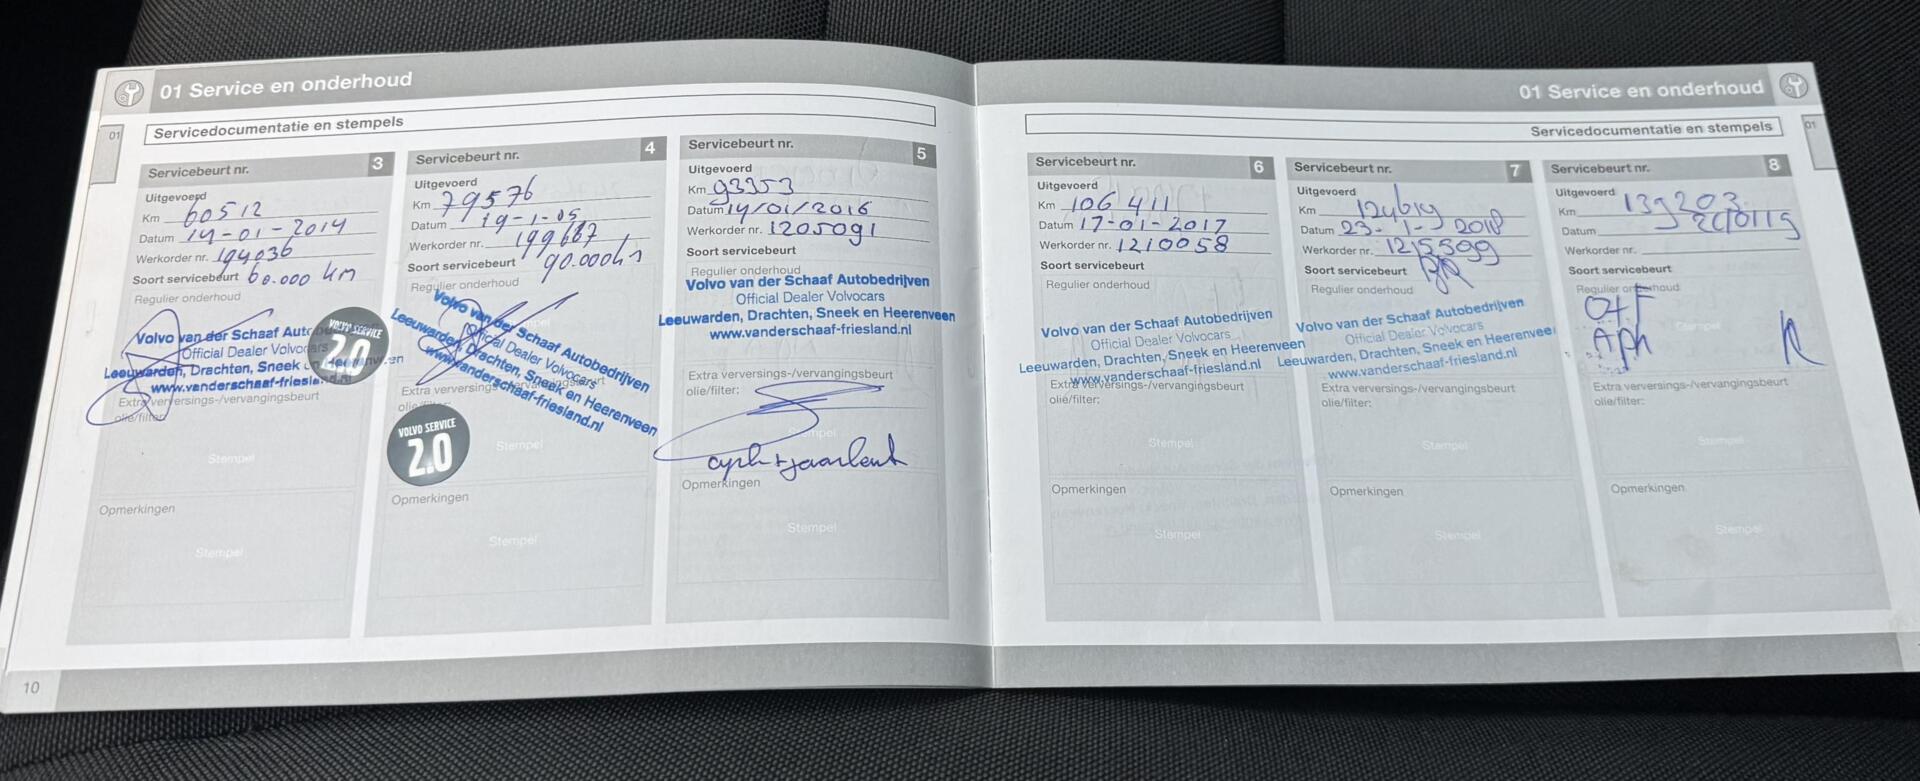 01 Service en onderhoud
01
Servicedocumentatie en stempels
Servicebeurt nr. 3
Uitgevoerd
Km 60512
Datum 14-01-2014
Werkorder nr. 194036
Soort servicebeurt 60.000 km
Regulier onderhoud
Volvo van der Schaaf Auto
Official Dealer Volvocars
Leeuwarden, Drachten, Sneek en Heerenveen
www.vanderschaaf-friesland.nl
VOLVO SERVICE
2.0
Extra verversings-/vervangingsbeurt
olie/filter:
Stempel
Opmerkingen
Stempel
Servicebeurt nr. 4
Uitgevoerd
Km 79576
Datum 19-1-05
Werkorder nr. 199687
Soort servicebeurt 90.000
Regulier onderhoud
Volvo van der Schaaf Autobedrijven
Official Dealer Volvocars
Leeuwarden, Drachten, Sneek en Heerenveen
www.vanderschaaf-friesland.nl
Extra verversings-/vervangingsbeurt
VOLVO SERVICE
2.0
Stempel
Opmerkingen
Stempel
Servicebeurt nr. 5
Uitgevoerd
Km 93353
Datum 14/01/2016
Werkorder nr. 1205091
Soort servicebeurt
Regulier onderhoud
Volvo van der Schaaf Autobedrijven
Official Dealer Volvocars
Leeuwarden, Drachten, Sneek en Heerenveen
www.vanderschaaf-friesland.nl
Extra verversings-/vervangingsbeurt
olie/filter:
Stempel
Opmerkingen
Stempel
10
01 Service en onderhoud
01
Servicedocumentatie en stempels
Servicebeurt nr. 6
Uitgevoerd
Km 106411
Datum 17-01-2017
Werkorder nr. 1210058
Soort servicebeurt
Regulier onderhoud
Volvo van der Schaaf Autobedrijven
Official Dealer Volvocars
Leeuwarden, Drachten, Sneek en Heerenveen
www.vanderschaaf-friesland.nl
Extra verversings-/vervangingsbeurt
olie/filter:
Stempel
Opmerkingen
Stempel
Servicebeurt nr. 7
Uitgevoerd
Km 124619
Datum 23-1-2018
Werkorder nr. 1215599
Soort servicebeurt
Regulier onderhoud
Volvo van der Schaaf Autobedrijven
Official Dealer Volvocars
Leeuwarden, Drachten, Sneek en Heerenveen
www.vanderschaaf-friesland.nl
Extra verversings-/vervangingsbeurt
olie/filter:
Stempel
Opmerkingen
Stempel
Servicebeurt nr. 8
Uitgevoerd
Km 139203
Datum
Werkorder nr.
Soort servicebeurt
Regulier onderhoud
O+F
Stempel
APK
Extra verversings-/vervangingsbeurt
olie/filter:
Stempel
Opmerkingen
Stempel